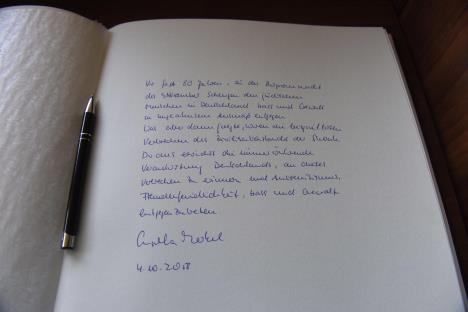 Vor fast 80 Jahren, in der Pogromnacht
des 9. November schlugen den jüdischen
Menschen in Deutschland Hass und Gewalt
in ungeahntem Ausmaß entgegen.
Was aber dann folgte, waren die beispiellosen
Verbrechen des Zivilisationsbruchs der Shoah.
Daraus erwächst die immerwährende
Verantwortung Deutschlands, an dieses
Verbrechen zu erinnern und Antisemitismus,
Fremdenfeindlichkeit, Hass und Gewalt
entgegenzutreten.
Angela Merkel
4.10.2018